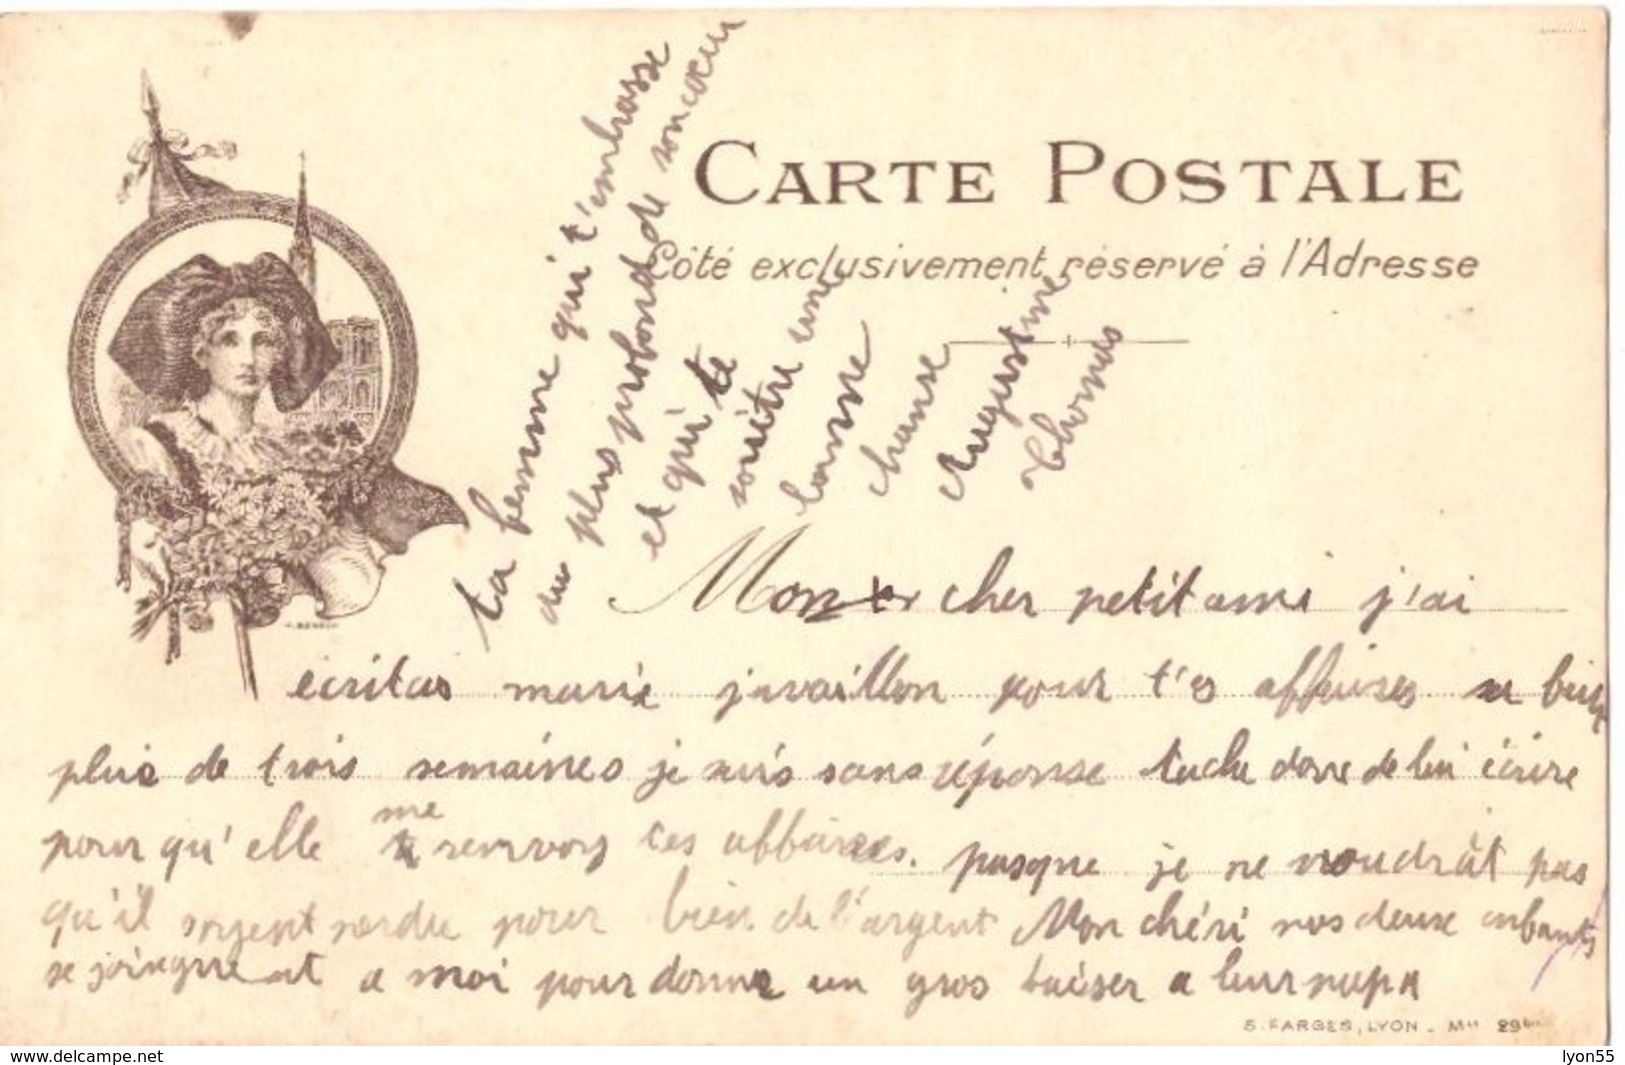 CARTE POSTALE
Côté exclusivement réservé à l'Adresse
Mon cher petit ami j'ai
écritas marie javaillon pour t'es affaires
plus de trois semaines je suis sans réponse tache donc de lui écrire
pour qu'elle me renvoy tes affaires. pasque je ne voudrât pas
qu'il soyent perdu pour bien de l'argent Mon chéri nos deux enfants
se joingnent a moi pour donner un gros baiser a leur papa
ta femme qui t'embrasse
du plus profond de son cœur
et qui te
souètre une
bonne
chanse
Augustine
Thomas
S. FARGES, LYON.
lyon55